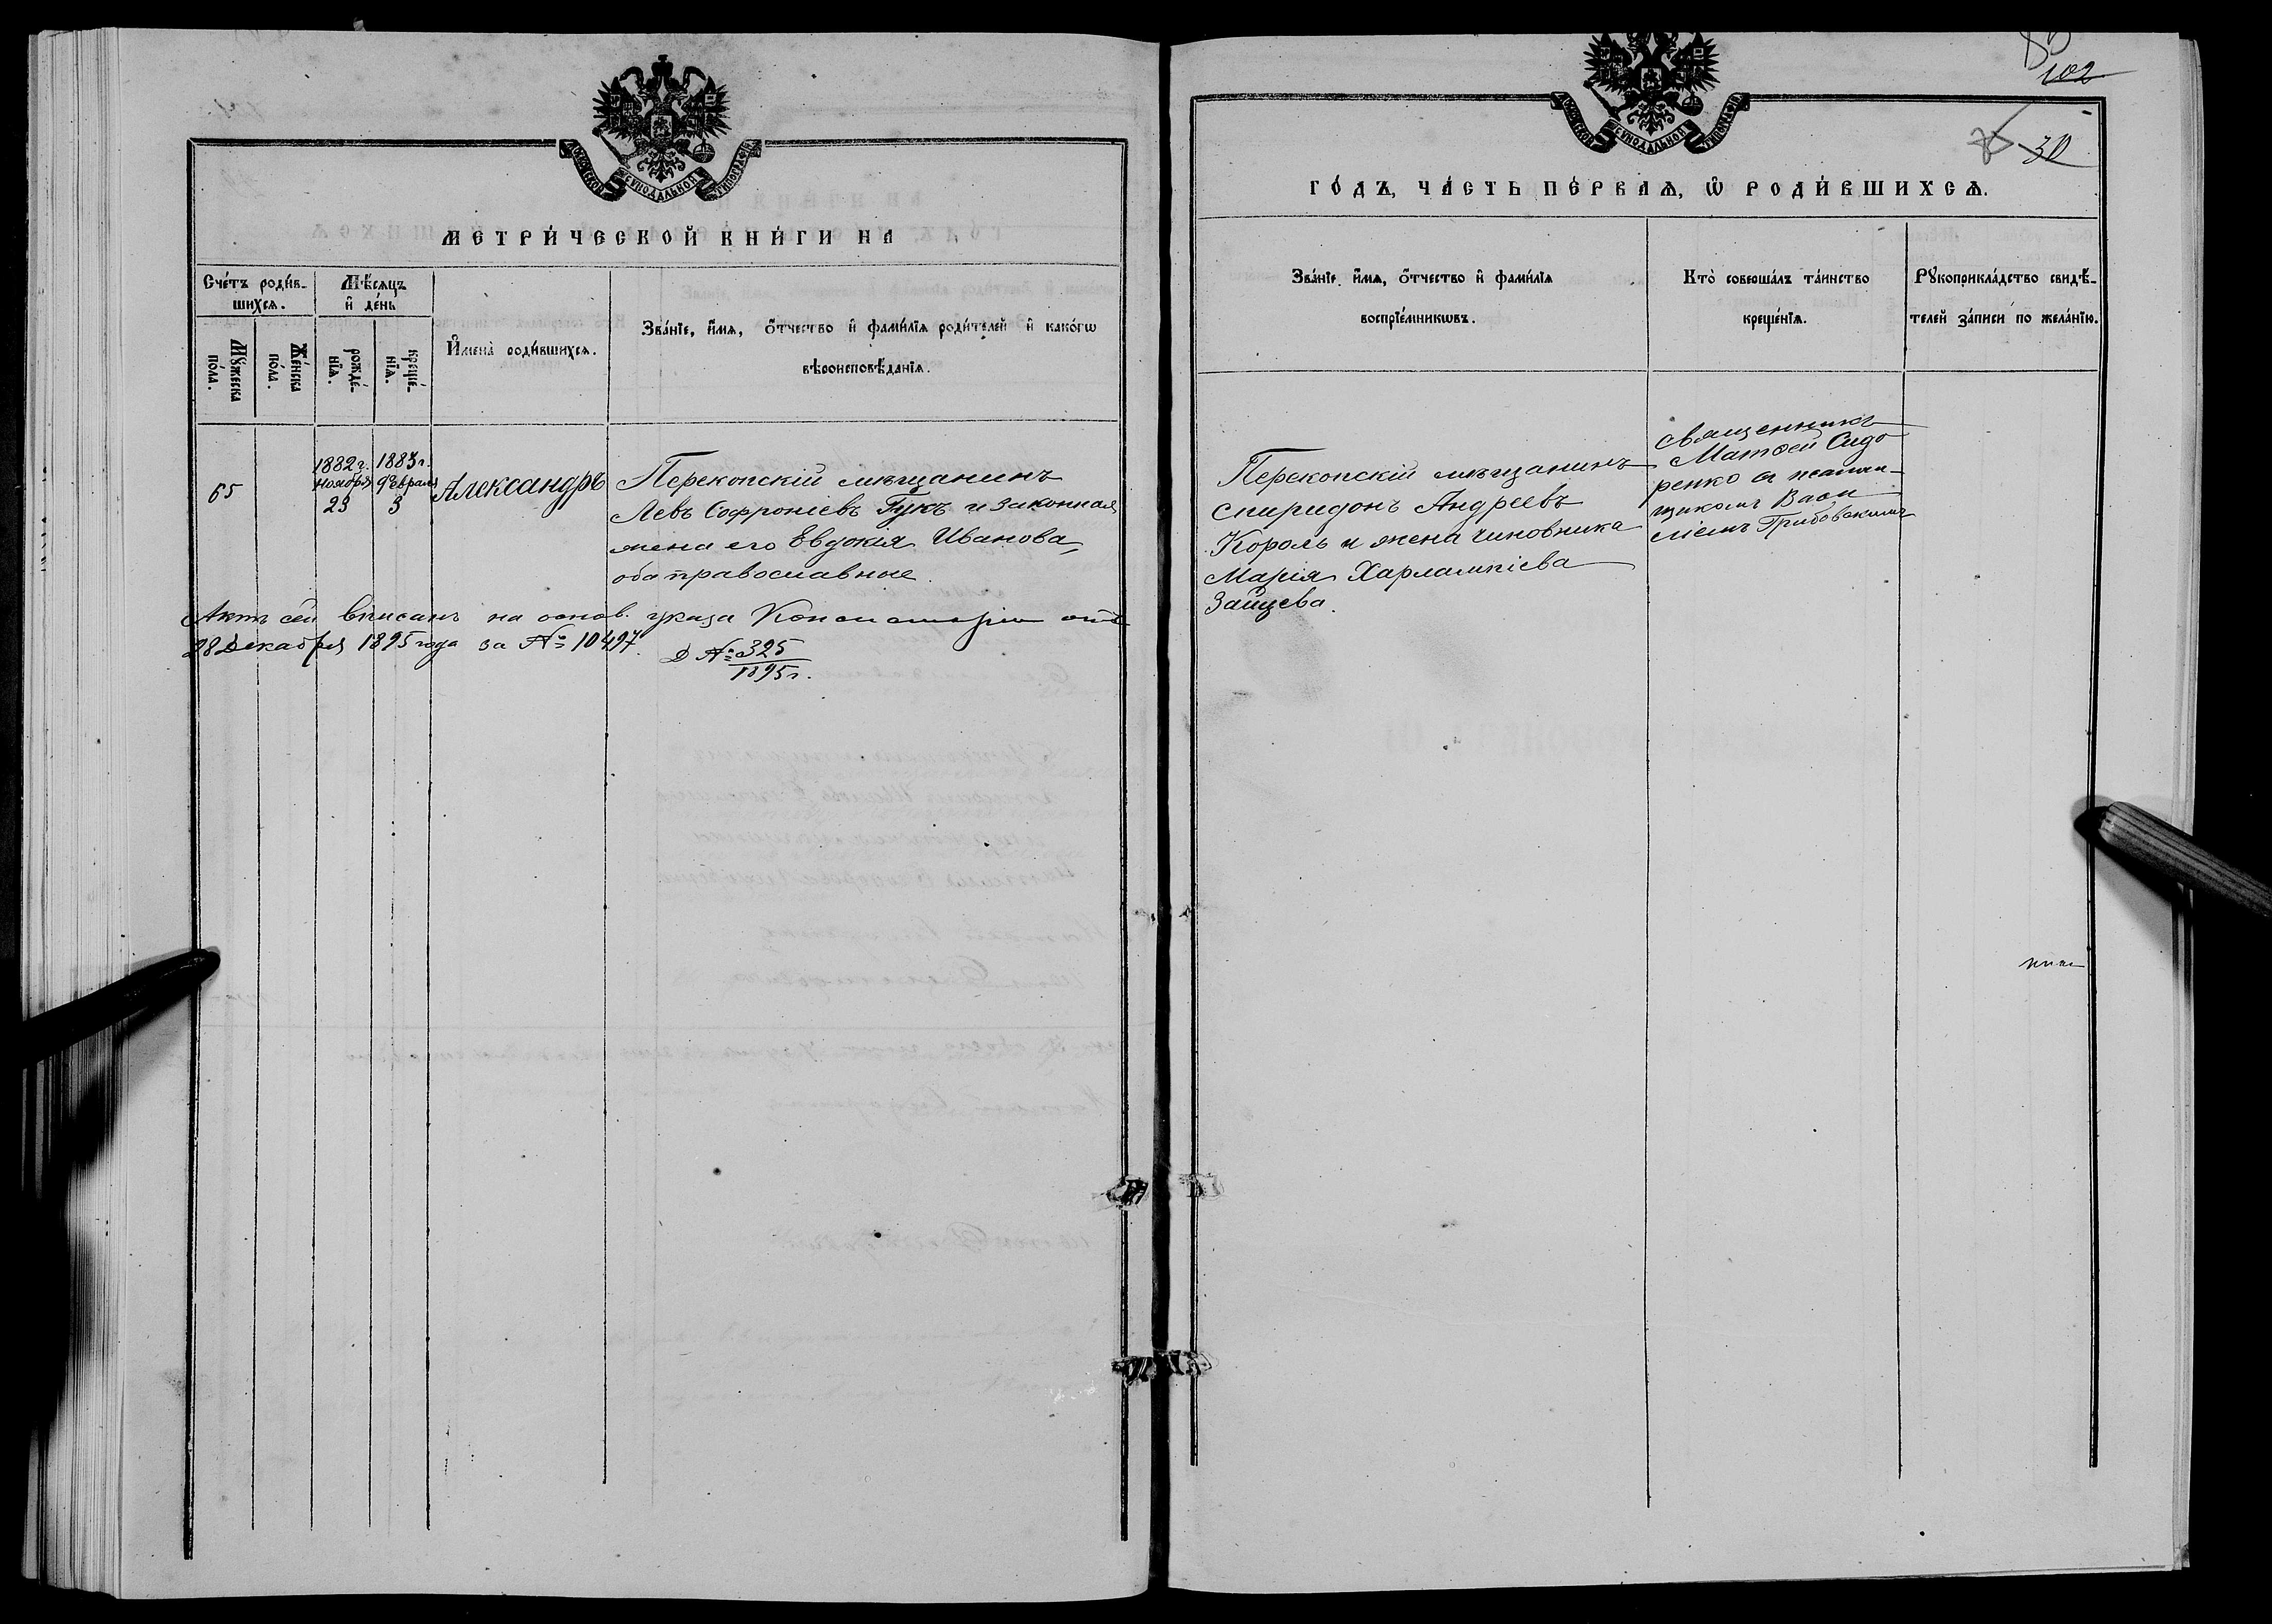 МОСКОВСКОЙ СѴНОДАЛЬНОЙ ТИПОГРАФІИ
МЕТРИ́ЧЕСКОЙ КНИ́ГИ НА
Сче́тъ роди́в-
шихсѧ.
Мѣ́сѧцъ
и҆ де́нь
Мꙋ́жеска
по́ла.
Же́нска
по́ла.
рожде́-
нїѧ.
креще́-
нїѧ.
И҆мена̀ роди́вшихсѧ.
Зва́нїе, и҆́мѧ, ѻ҆́тчество и҆ фами́лїѧ роди́телей и҆ како́гѡ
вѣроисповѣ́данїѧ.
65
1882 г.
ноября
23
1883 г.
Февраля
3
Александръ
Перекопскій мѣщанинъ
Левъ Софроніевъ Гукъ и законная
жена его Евдокія Иванова,
оба православные.
Актъ сей вписанъ на основ. указа Консисторіи отъ
28 Декабря 1895 года за № 10497.
Д № 325
1895 г.
102
30
МОСКОВСКОЙ СѴНОДАЛЬНОЙ ТИПОГРАФІИ
ГО́ДЪ, ЧА́СТЬ ПЕ́РВАѦ, Ѡ҆ РОДИ́ВШИХСѦ.
Зва́нїе, и҆́мѧ, ѻ҆́тчество и҆ фами́лїѧ
воспрїе́мникѡвъ.
Кто̀ соверша́лъ та́инство
креще́нїѧ.
Рꙋкоприкла́дство свидѣ́-
телей за́писи по жела́нїю.
Перекопскій мѣщанинъ
Спиридонъ Андреевъ
Король и жена чиновника
Марія Харлампіева
Зайцева.
Священникъ
Матѳей Сидо
ренко съ псалом-
щикомъ Васи
ліемъ Грибовскимъ